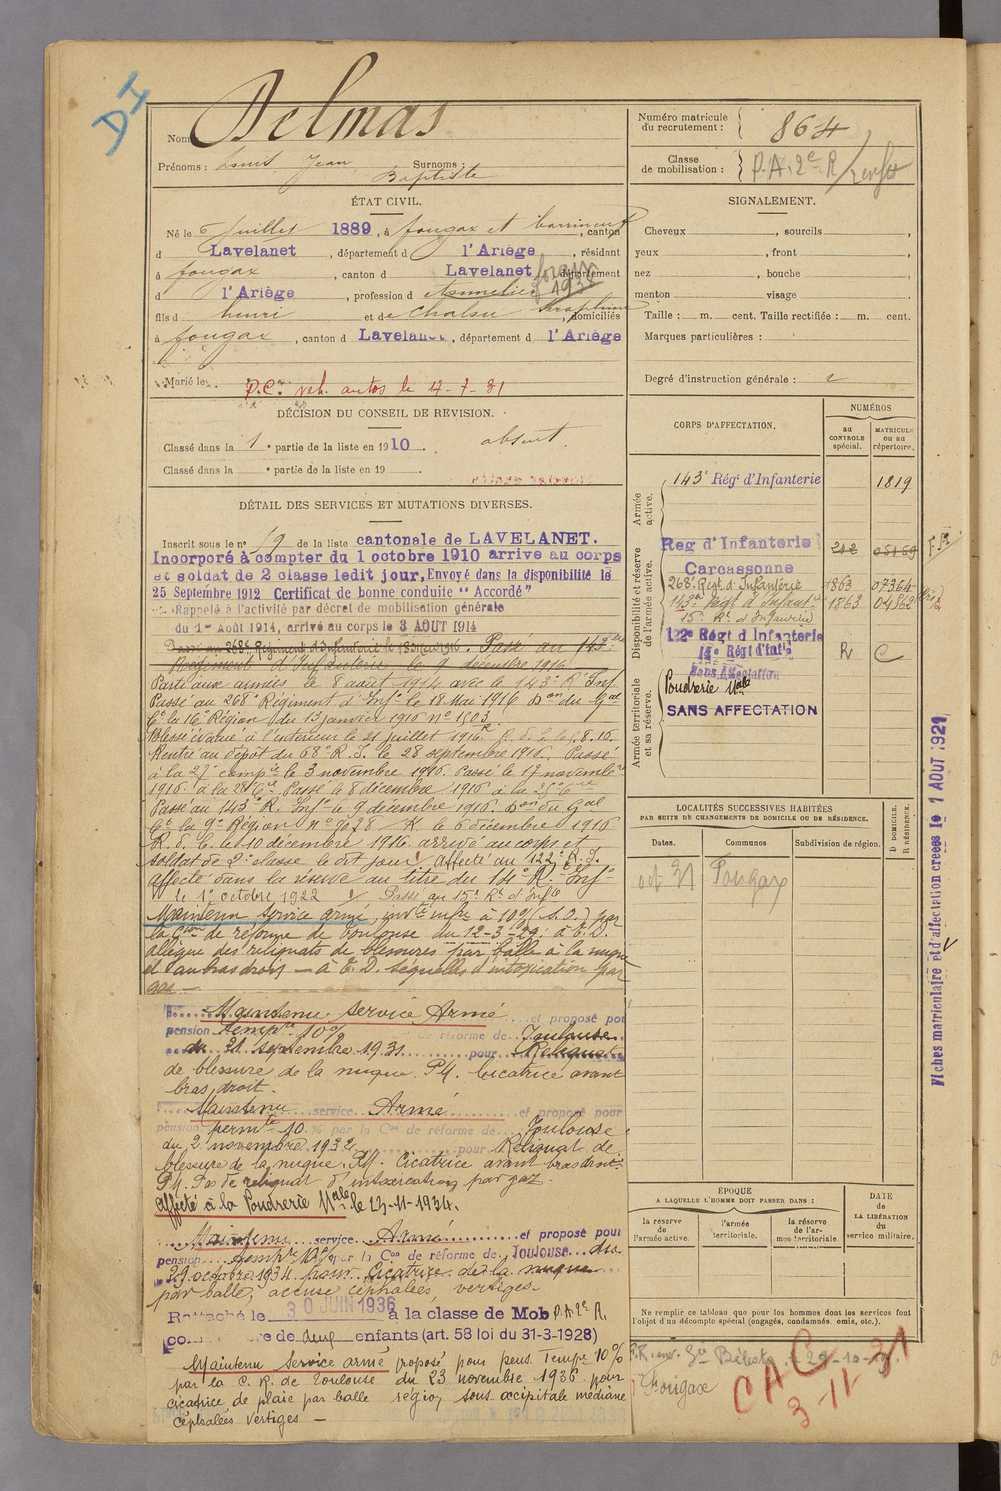 DI
Nom : Delmas
Prénoms : Louis, Jean, Surnoms :
Baptiste
Numéro matricule du recrutement : 864
Classe de mobilisation : P.A. 2e R
ÉTAT CIVIL.
Né le 6 Juillet 1889, à fougax et barrineuf, canton
d Lavelanet, département d l'Ariège, résidant
à fougax, canton d Lavelanet, département
d l'Ariège, profession d
forain 1935
fils d henri et de
, domiciliés
à fougax, canton d Lavelanet, département d l'Ariège
Marié le
P.C. veh. autos le
DÉCISION DU CONSEIL DE REVISION.
Classé dans la 1e partie de la liste en 1910. absent.
Classé dans la e partie de la liste en 19
DÉTAIL DES SERVICES ET MUTATIONS DIVERSES.
Inscrit sous le n° 19 de la liste cantonale de LAVELANET.
Incorporé à compter du 1 octobre 1910 arrive au corps
et soldat de 2 classe ledit jour, Envoyé dans la disponibilité le
25 Septembre 1912 Certificat de bonne conduite "Accordé"
Rappelé à l'activité par décret de mobilisation générale
du 1er Août 1914, arrivé au corps le 3 AOUT 1914
Passé au 268e Régiment d'Infanterie le 18 Mai 1916. Passé au 143e
Régiment d'Infanterie le 9 décembre 1916.
Parti aux armées le 8 août 1914 avec le 143e R. Inf
Passé au 268e Régiment d'Infie le 18 Mai 1916 Don du Gal
Ct la 16e Région du 13 janvier 1916 n° 1503.
Blessé évacué à l'intérieur le 21 juillet 1916
Rentré au dépôt du 68e R. I. le 28 septembre 1916. Passé
à la 27e compie le 3 novembre 1916. Passé le 17 novembre
1916 à la 28e Cie Passé le 8 décembre 1916 à la 25e Cie
Passé au 143e R. Infie le 9 décembre 1916. Don du Gal
Ct la 9e Région n° 9078 K. le 6 décembre 1916.
R. d. C. le 10 décembre 1916 arrivé au corps et
soldat de 2e classe le dit jour. Affecté au 122e R.I.
affecté dans la réserve au titre du 14e R. Infie
le 1er octobre 1922 Passé au 15e Rt d'Infie
Maintenu service armé, invté infre à 10% (S.O.) par
la Con de réforme de Toulouse du 12-3-29: à E.D.
allègue des reliquats de blessures par balle à la nuque
et au bras droit — à E.D. séquelles d'intoxication par
gaz —
Maintenu service Armé et proposé pour
pension tempre 10% de réforme de Toulouse
du 21 septembre 1931 pour Reliquat
de blessure de la nuque. PM. Cicatrice avant
bras droit.
Maintenu service Armé et proposé pour
pension permte 10 % par la Con de réforme de Toulouse
du 2 novembre 1932 pour Reliquat de
blessure de la nuque. PM. Cicatrice avant bras droit.
PM. Pas de reliquat d'intoxication par gaz.
Affecté à la Poudrerie Nale le 23-11-1934.
Maintenu service Armé et proposé pour
pension tempre 10% par la Con de réforme de Toulouse du
29 octobre 1934 pour Cicatrice de la nuque
par balle, accuse céphalées, vertiges.
Rattaché le 30 JUIN 1936 à la classe de Mob P.A. 2e R.
comme père de deux enfants (art. 58 loi du 31-3-1928)
Maintenu Service armé proposé pour pens. Tempre 10%
par la C. R. de Toulouse du 23 novembre 1936 pour
cicatrice de plaie par balle région sous occipitale médiane
céphalées vertiges —
SIGNALEMENT.
Cheveux , sourcils ,
yeux , front ,
nez , bouche ,
menton visage
Taille : m. cent. Taille rectifiée : m. cent.
Marques particulières :
Degré d'instruction générale : 2
CORPS D'AFFECTATION.
NUMÉROS
au CONTROLE spécial.
MATRICULE ou au répertoire.
Armée active.
143e Régt d'Infanterie 1819
Disponibilité et réserve de l'armée active.
Reg d'Infanterie
Carcassonne
268e Regt d'Infanterie 1863 07364
143e Régt d'Infanterie 1863 04862
15e Rt d'Infanterie
122e Régt d Infanterie
14e Régt d'Infie R C
Sans Affectation
Armée territoriale et sa réserve.
Poudrerie Nale
SANS AFFECTATION
LOCALITÉS SUCCESSIVES HABITÉES
PAR SUITE DE CHANGEMENTS DE DOMICILE OU DE RÉSIDENCE.
Dates. Communes Subdivision de région.
D DOMICILE. R RÉSIDENCE.
oct 31 Fougax
Fiches matriculaire et d'affectation créées le 1 AOUT 1921
ÉPOQUE
A LAQUELLE L'HOMME DOIT PASSER DANS :
la réserve de l'armée active.
l'armée territoriale.
la réserve de l'armée territoriale.
DATE DE LA LIBÉRATION du service militaire.
Ne remplir ce tableau que pour les hommes dont les services font
l'objet d'un décompte spécial (engagés, condamnés, omis, etc.).
Bélesta 29-10-31.
Fougax
CAC
3-11-31